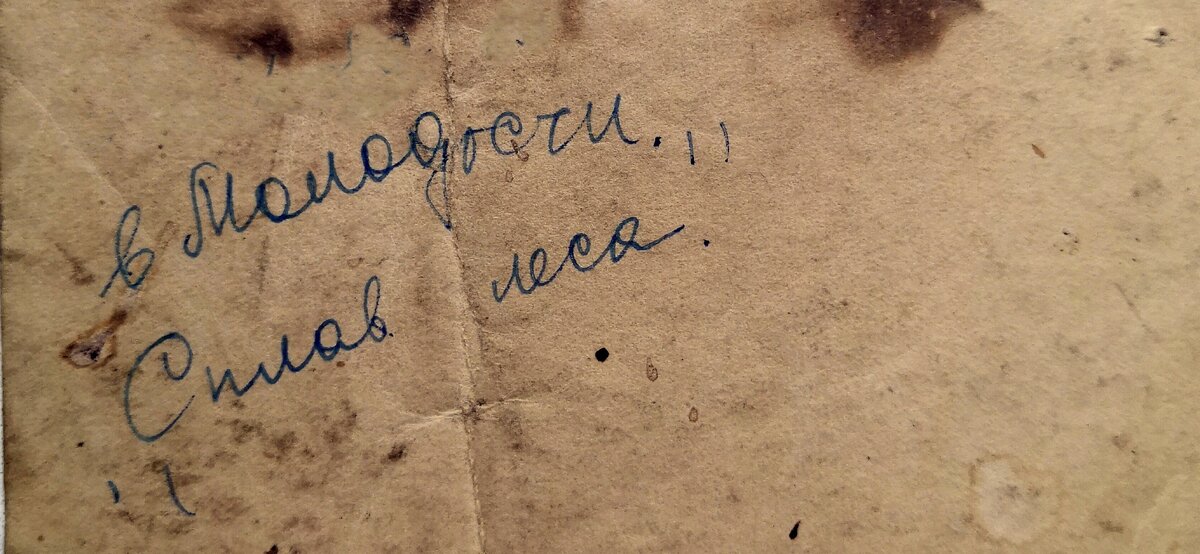 в Молодости.,,
Сплав леса.